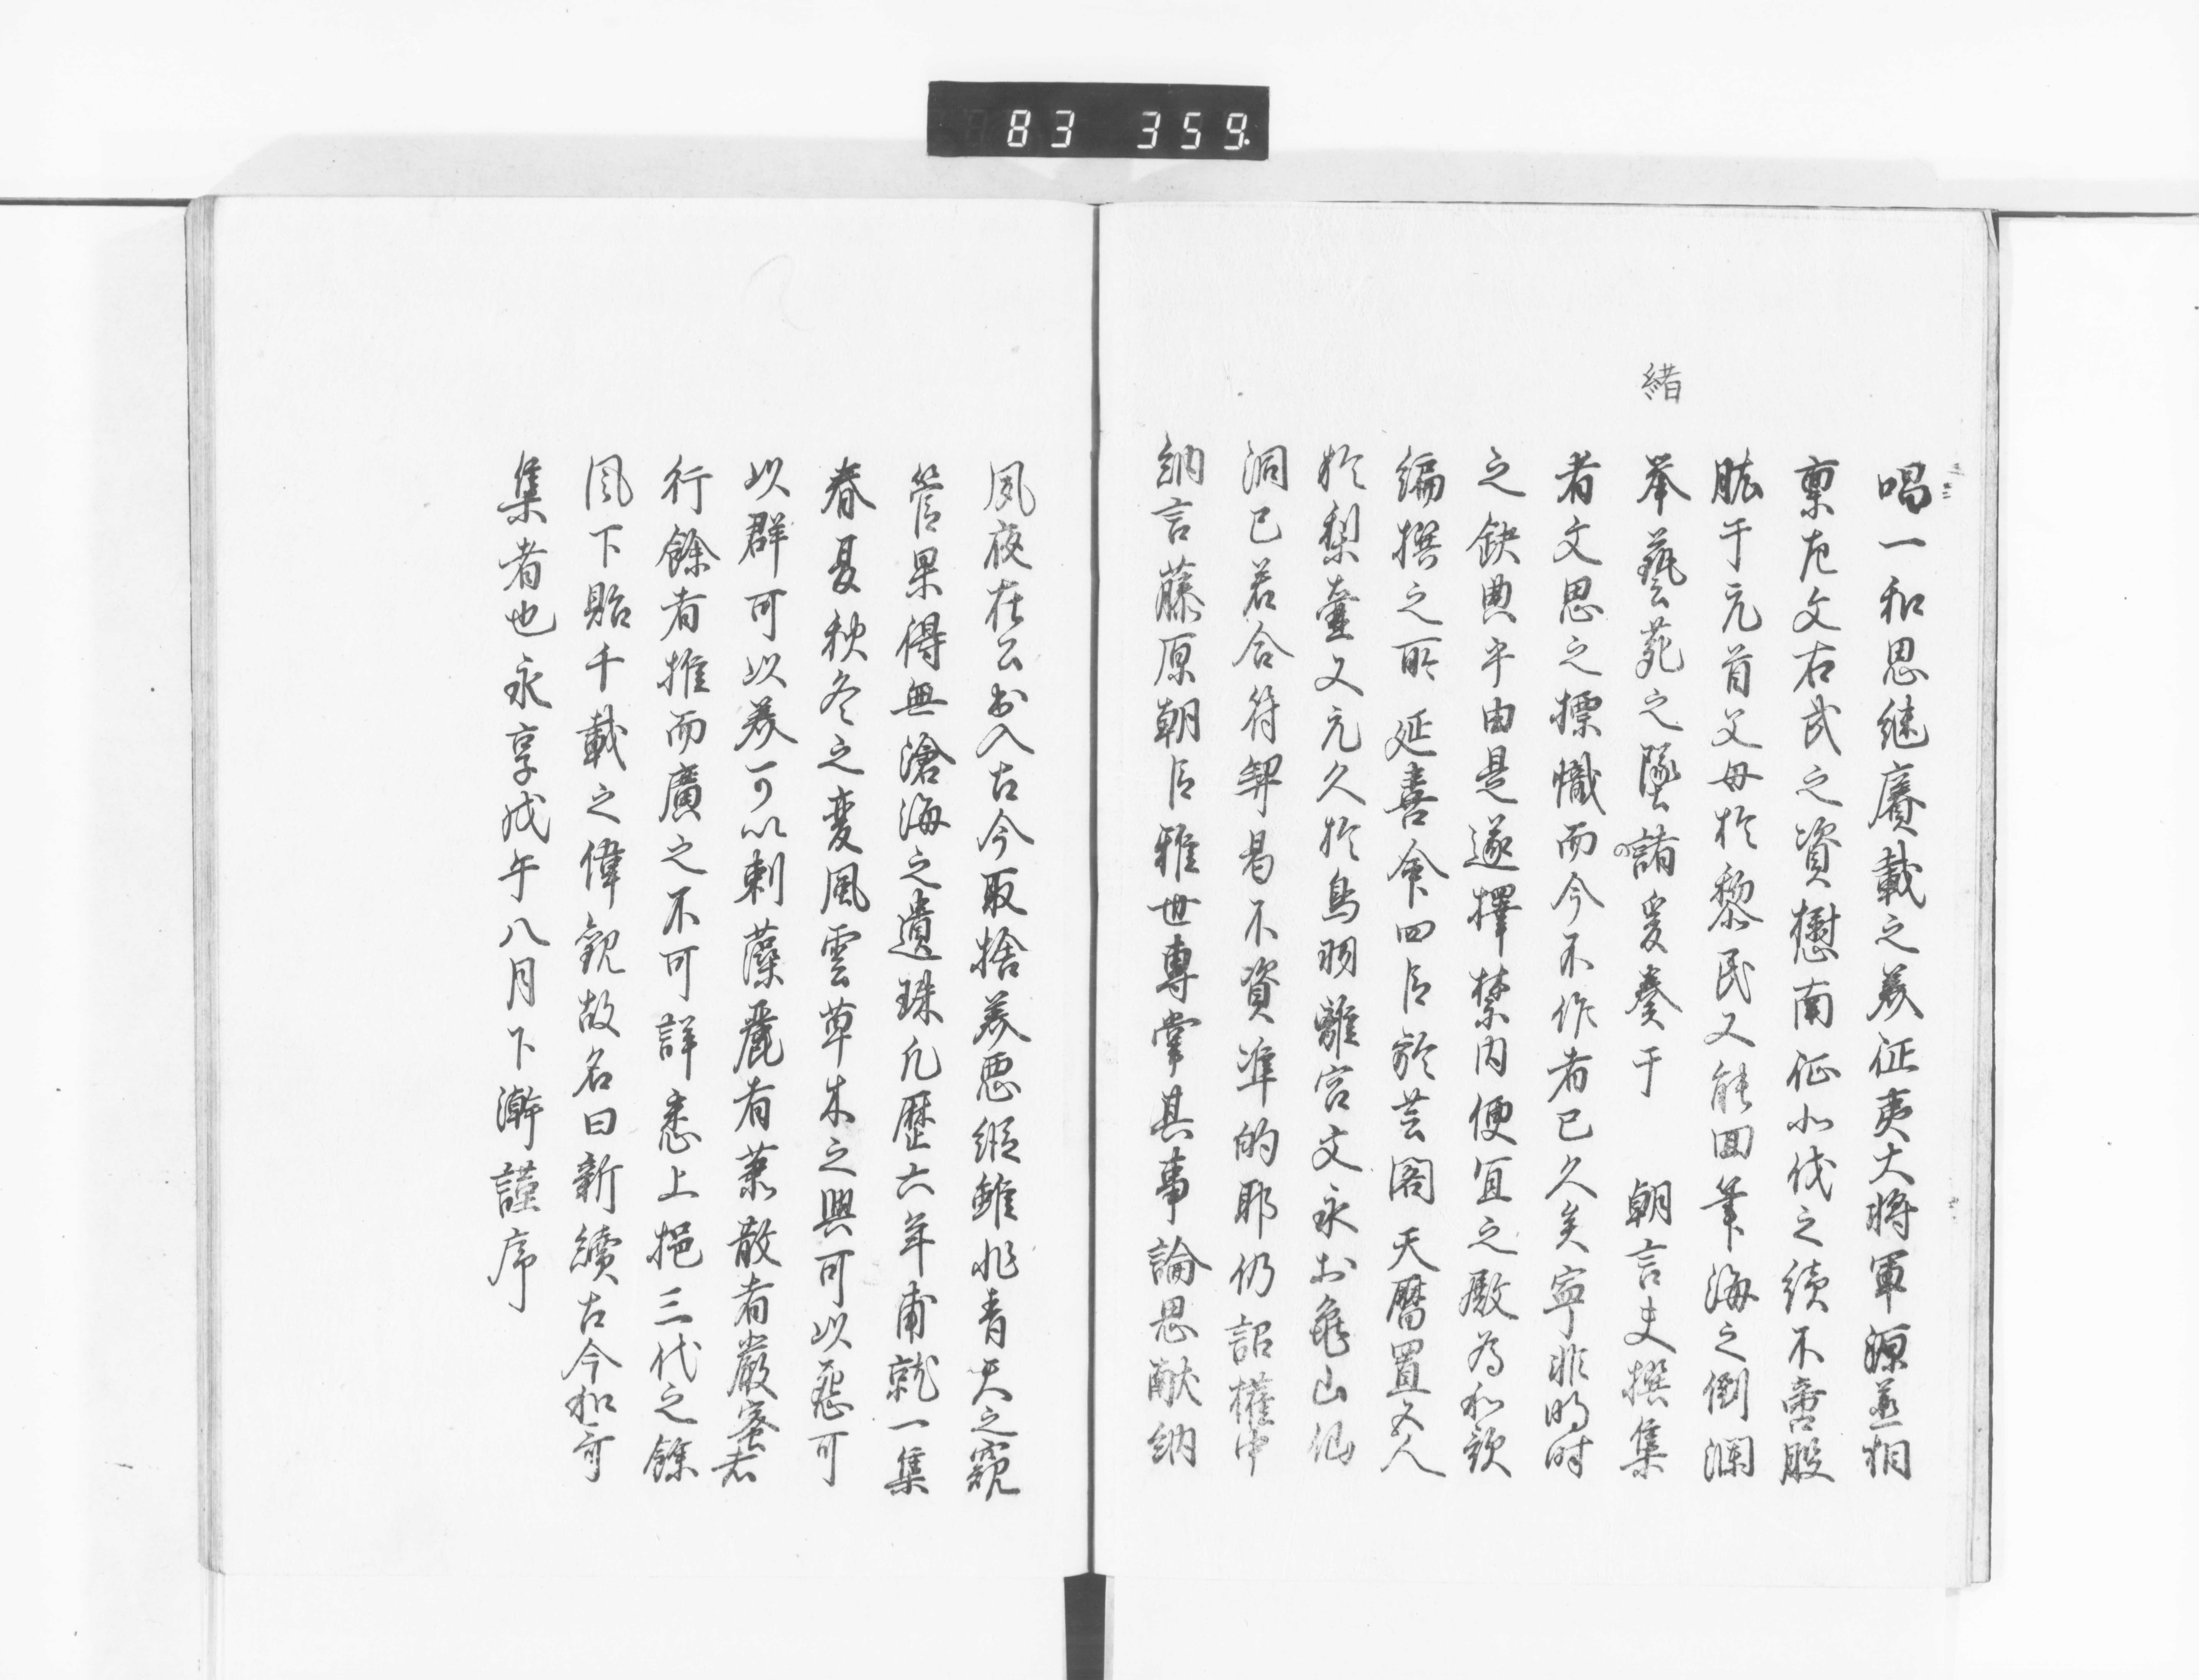 83 359.
唱一和思継賡載之美征夷大将軍源丞相
稟左文右武之資樹南征北伐之績不啻股
肱于元首父母於黎民又能回筆海之倒瀾
挙藝苑之墜諸爰奏于 朝言夫撰集
緒
者文思之標幟而今不作者已久矣寧非明時
之鈌典乎由是遂擇禁内便宜之殿為和歌
編撰之所延喜命四臣於芸閣天暦置五人
於梨壷又元久於鳥羽離宮文永於亀山仙
洞已若合符契曷不資準的耶仍詔権中
納言藤原朝臣雅世専掌其事論思献納
夙夜在公出入古今取捨美悪縦雖非青天之窺
管果得無滄海之遺珠凡歴六年甫就一集
春夏秋冬之変風雲草木之興可以怨可
以群可以美可以刺藻麗者蕭散者厳密者
行餘者推而廣之不可詳悉上挹三代之餘
風下貽千載之偉観故名曰新續古今和哥
集者也永享戊午八月下澣謹序